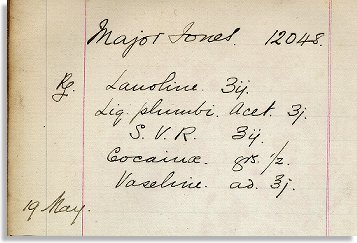 Major Jones. 12048.
Rx. Lanoline. ʒij.
Liq. plumbi. Acet. ʒj.
S. V. R. ʒij.
Cocainæ. grs. 1/2.
Vaseline. ad. ℥j.
19 May.